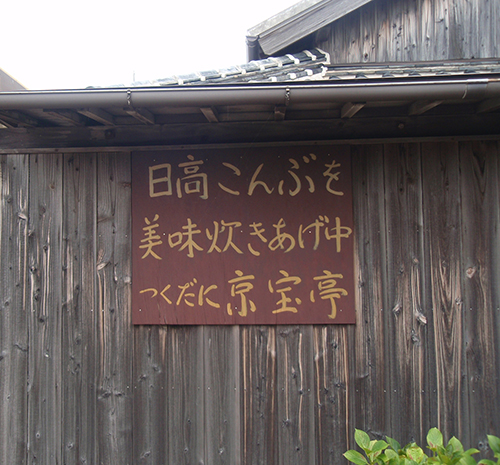 日高こんぶを
美味炊きあげ中
つくだに京宝亭